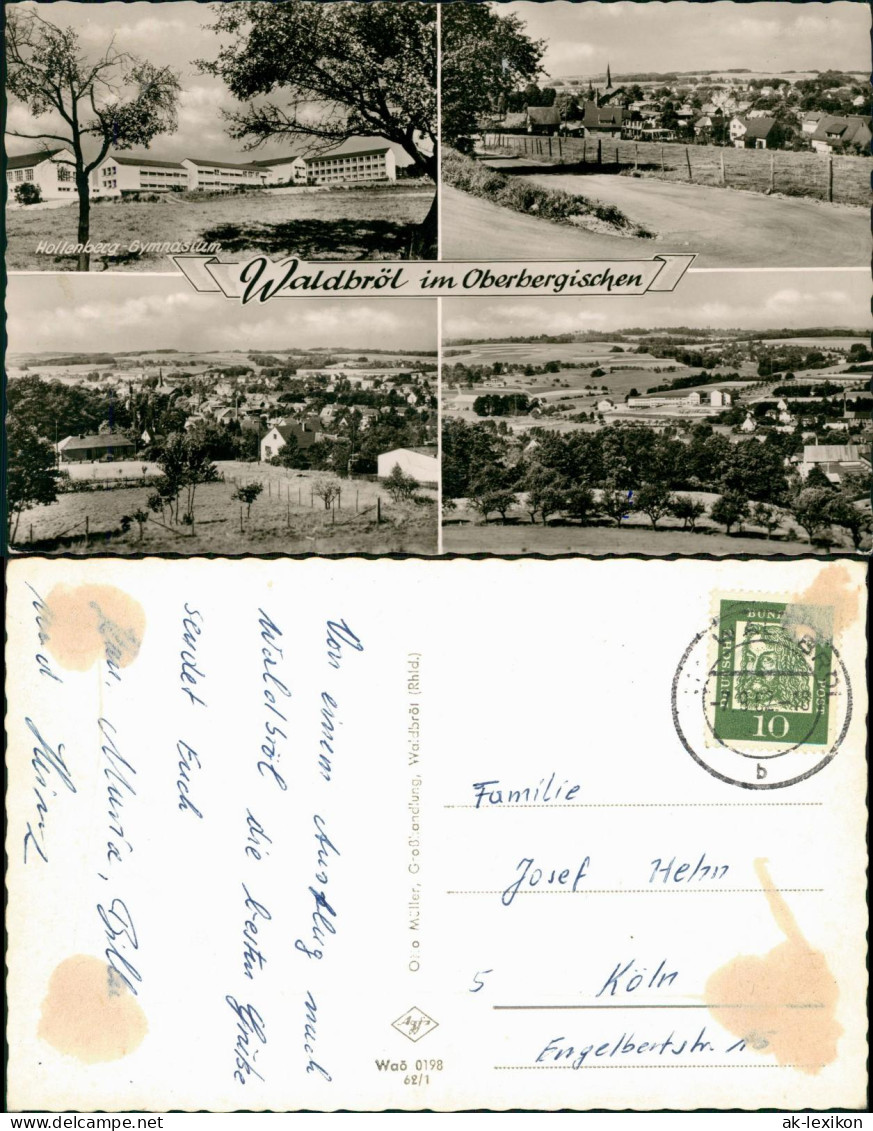 Hollenberg-Gymnasium
Waldbröl im Oberbergischen
Von einem Ausflug nach
Waldbröl die besten Grüße
sendet Euch
Maria,
und Heinz
Otto Müller, Großhandlung, Waldbröl (Rhld.)
Agfa
Waö 0198
62/1
DEUTSCHE
BUND
POST
10
b
Familie
Josef Hehn
5 Köln
Engelbertstr.
ak-lexikon
www.ak-lexikon.de